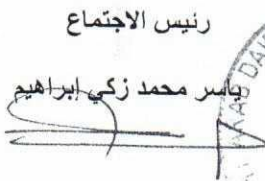 رئيس الاجتماع
ياسر محمد زكي إبراهيم